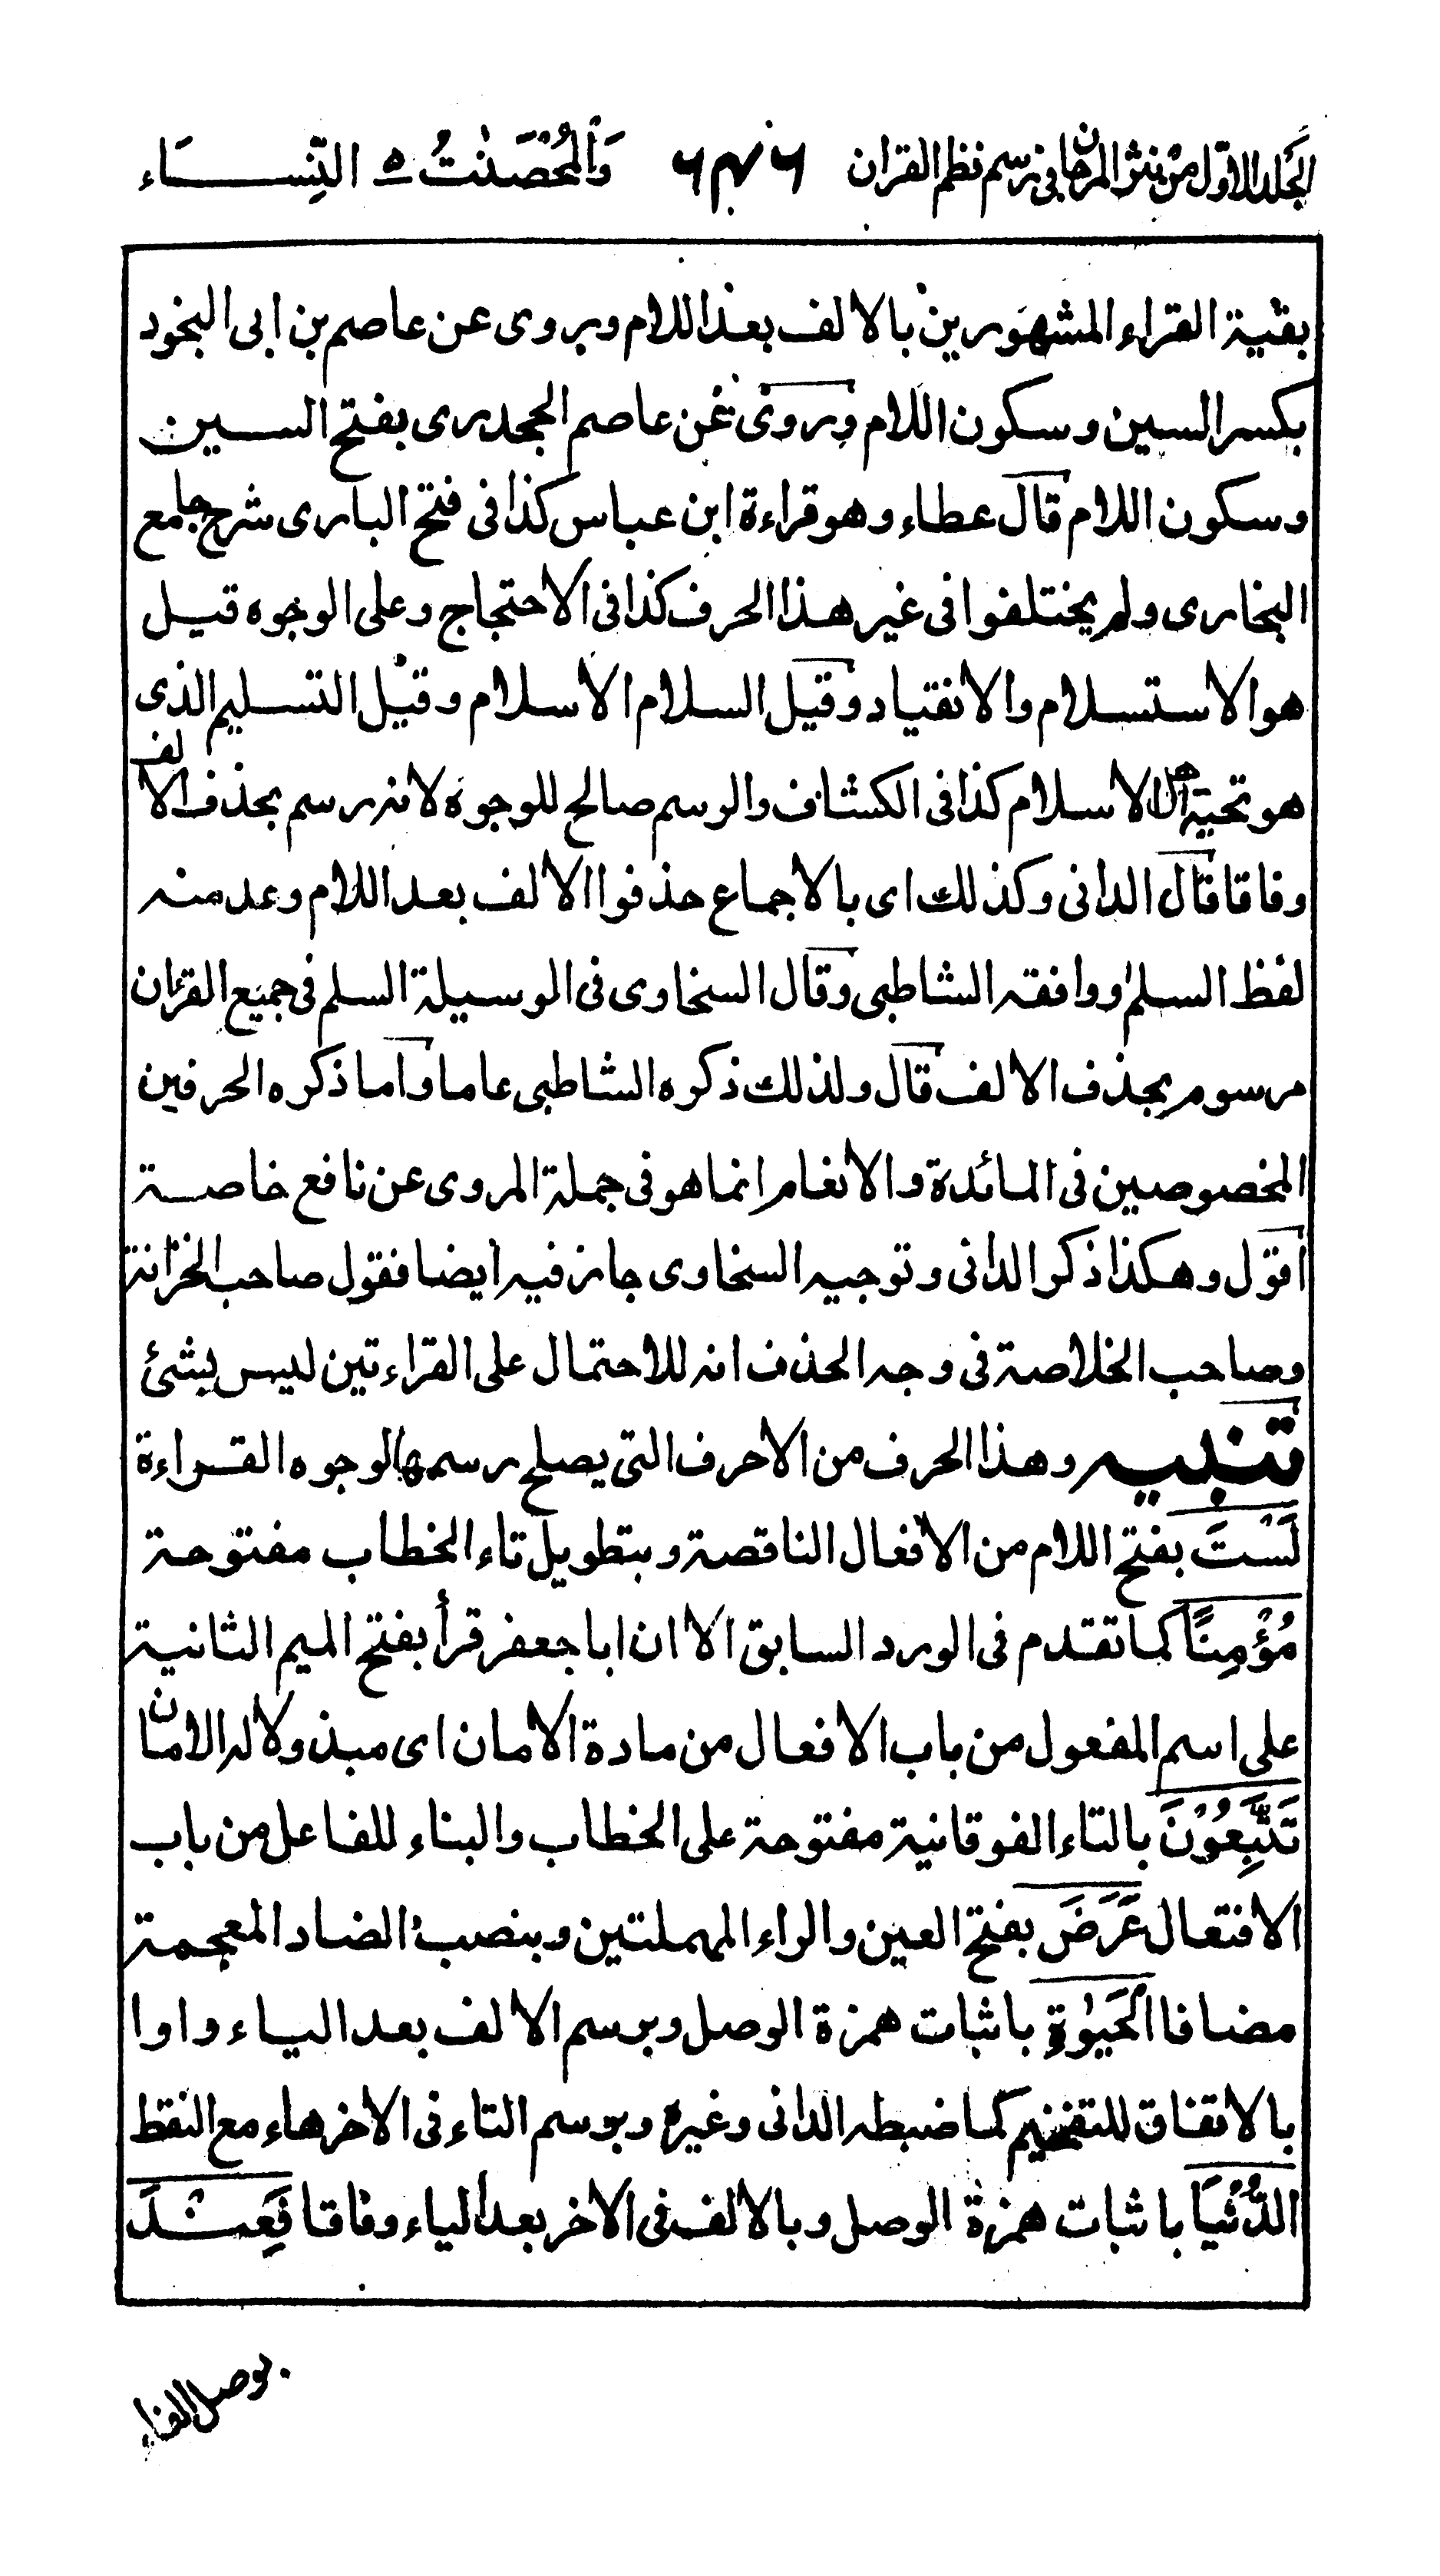 الجلد الاول من نثر المرجان فى رسم نظم القران ٦٤٦ وَالْمُحْصَنٰتُ ٥ النِّسَاء
بقية القراء المشهورين بالالف بعد اللام ويروى عن عاصم بن ابى النجود
بكسر السين وسكون اللام ويروى عن عاصم الجحدرى بفتح السين
وسكون اللام قال عطاء وهو قراءة ابن عباس كذا فى فتح البارى شرح جامع
البخارى ولم يختلفوا فى غير هذا الحرف كذا فى الاحتجاج وعلى الوجوه قيل
هو الاستسلام والانقياد وقيل السلام الاسلام وقيل التسليم الذى
هو تحية اهل الاسلام كذا فى الكشاف والرسم صالح للوجوه لانه رسم بحذف الالف
وفاقا قال الدانى وكذلك اى بالاجماع حذفوا الالف بعد اللام وعد منه
لفظ السلم ووافقه الشاطبى وقال السخاوى فى الوسيلة السلم فى جميع القرءان
مرسوم بحذف الالف قال ولذلك ذكره الشاطبى عاما واما ذكره الحرفين
المخصوصين فى المائدة والانعام انما هو فى جملة المروى عن نافع خاصة
اقول وهكذا ذكر الدانى وتوجيه السخاوى جاز فيه ايضا فقول صاحب الخزانة
وصاحب الخلاصة فى وجه الحذف انه للاحتمال على القراءتين ليس بشئ
تنبيه وهذا الحرف من الاحرف التى يصلح رسمها لوجوه القراءة
لَسْتَ بفتح اللام من الافعال الناقصة وبتطويل تاء الخطاب مفتوحة
مُؤْمِنًا كما تقدم فى الورد السابق الا ان ابا جعفر قرأ بفتح الميم الثانية
على اسم المفعول من باب الافعال من مادة الامان اى مبذولا له الامان
تَبْتَغُوْنَ بالتاء الفوقانية مفتوحة على الخطاب والبناء للفاعل من باب
الافتعال عَرَضَ بفتح العين والراء المهملتين وبنصب الضاد المعجمة
مضافا الْحَيٰوةِ باثبات همزة الوصل وبرسم الالف بعد الياء واوا
بالاتفاق للتفخيم كما ضبطه الدانى وغيره وبرسم التاء فى الاخر هاء مع النقط
الدُّنْيَا باثبات همزة الوصل وبالالف فى الاخر بعد الياء وفاقا فَعِنْدَ
بوصل الفاء